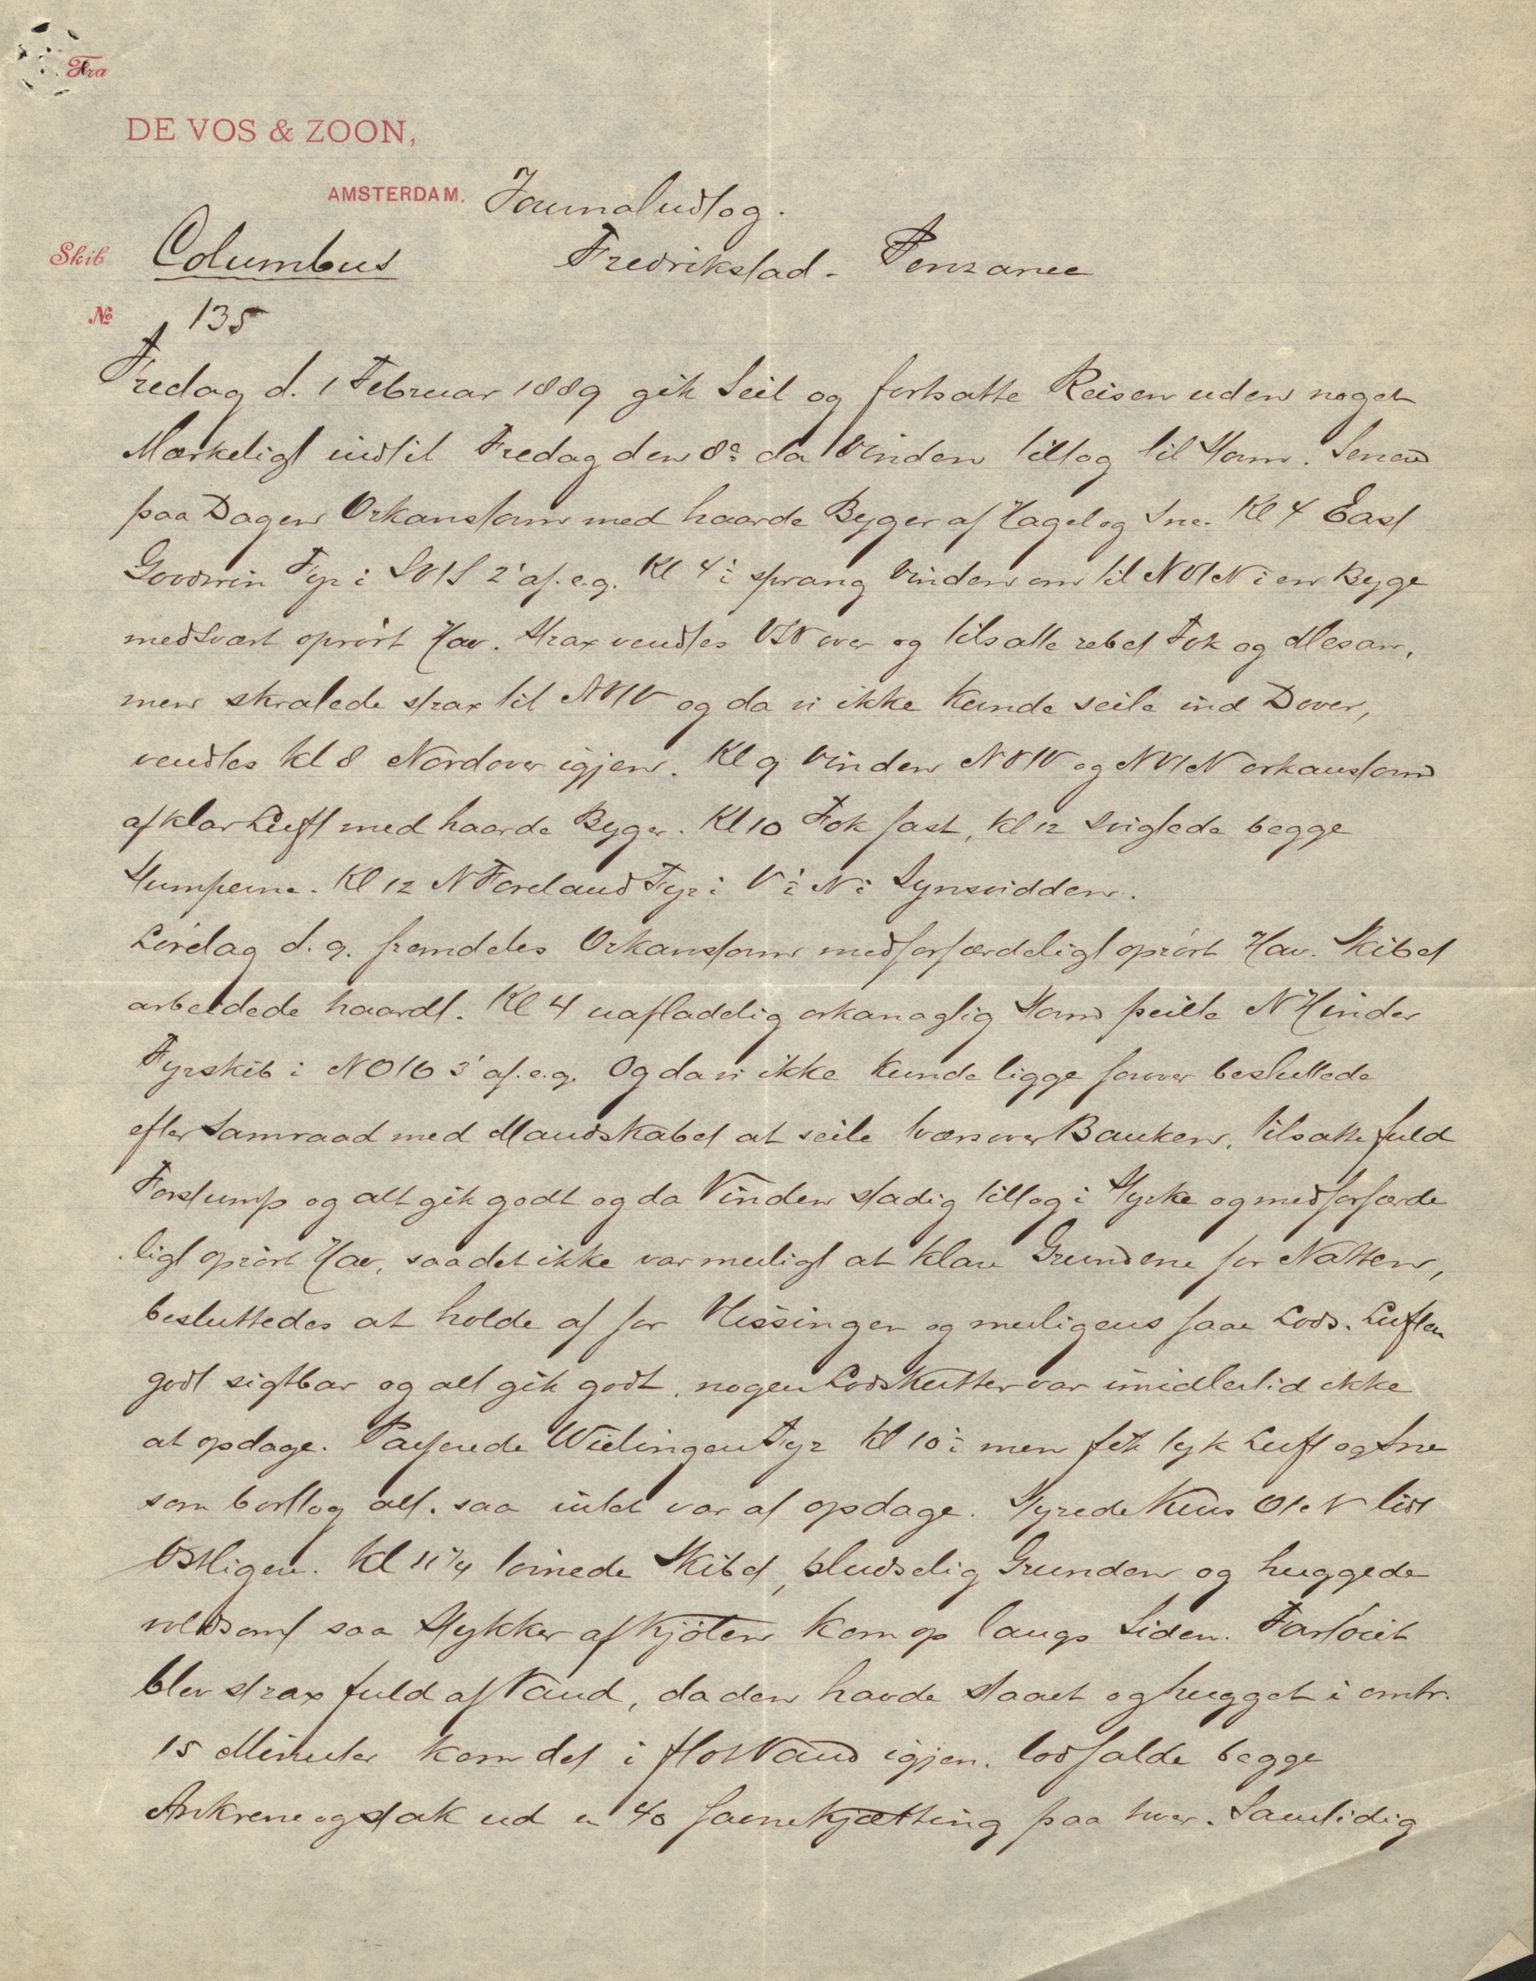 Fra
DE VOS & ZOON,
AMSTERDAM. Journaludtog.
Skib Columbus Fredrikstad - Penzance
No 135
Fredag d. 1 Februar 1889 gik Seil og fortsatte Reisen uden noget
Mærkeligt indtil Fredag den 8de da Vinden tiltog til Storm. Senere
paa Dagen Orkanstorm med haarde Byger af Hagel og Sne. Kl 4 East
Goodwin Fyr i 2' af. e.g. Kl 4½ sprang Vinden om til NVtN i en Byge
med svært oprørt Hav. Strax vendtes over og tilsatte rebet Fok og Mesan,
men skralede strax til NVtV og da vi ikke kunde seile ind Dover,
vendtes Kl 8 Nordover igjen. Kl 9 Vinden NVtV og NVtN orkanstorm
af klar Luft med haarde Byger. Kl 10 Fok fast, Kl 12 svigtede begge
Stumperne. Kl 12 N Foreland Fyr i V½N i Synsvidden.
Lørdag d. 9. fremdeles Orkanstorm med forfærdeligt oprørt Hav. Skibet
arbeidede haardt. Kl 4 uafladelig orkanagtig Storm peilte N Hinder
Fyrskib i NOtO 3' af. e.g. Og da vi ikke kunde ligge forover besluttede
efter Samraad med Mandskabet at seile tværsover Banken, tilsatte fuld
Forstump og alt gik godt og da Vinden stadig tiltog i Styrke og med forfærde
ligt oprørt Hav, saa det ikke var muligt at klare Grundene for Natten,
besluttedes at holde af for Vlissingen og muligens faae Lods. Luften
godt sigtbar og alt gik godt, nogen Lodskutter var imidlertid ikke
at opdage. Passerede Wielingen Fyr Kl 10½ men fik tyk Luft og Sne
som borttog alt. saa intet var at opdage. Styrede Kurs OtN lidt
Østligere. Kl 11¼ tørnede Skibet, pludselig Grunden og huggede
voldsomt saa Stykker af Kjølen kom op langs Siden. Fartøiet
blev strax fuld af Vand, da den havde staaet og hugget i omtr.
15 Minuter kom det i flot Vand igjen. lodfalde begge
Ankrene og stak ud 40 favne kjætting paa hver. Samtidig